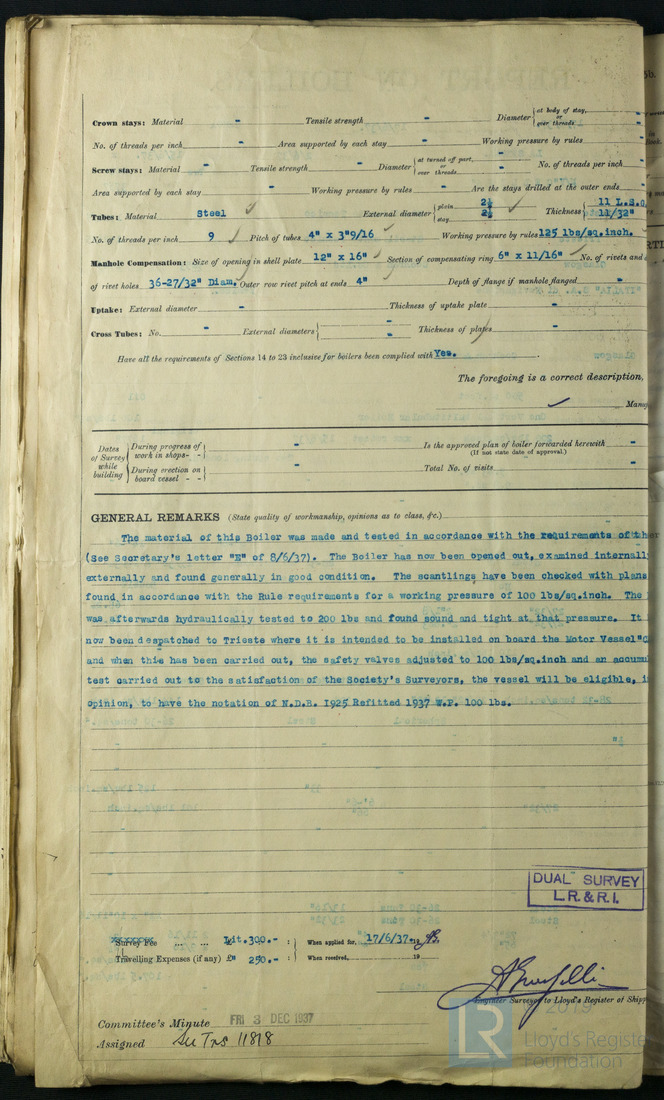 Crown stays: Material - Tensile strength - Diameter { at body of stay, or over threads -
No. of threads per inch - Area supported by each stay - Working pressure by rules -
Screw stays: Material - Tensile strength - Diameter { at turned off part, or over threads - No. of threads per inch -
Area supported by each stay - Working pressure by rules - Are the stays drilled at the outer ends -
Tubes: Material Steel External diameter { plain 2½ stay 2½ Thickness { 11 L.S.G. 11/32"
No. of threads per inch 9 Pitch of tubes 4" x 3"9/16 Working pressure by rules 125 lbs/sq.inch.
Manhole Compensation: Size of opening in shell plate 12" x 16" Section of compensating ring 6" x 11/16" No. of rivets and
of rivet holes 36-27/32" Diam. Outer row rivet pitch at ends 4" Depth of flange if manhole flanged -
Uptake: External diameter - Thickness of uptake plate -
Cross Tubes: No. - External diameters { - Thickness of plates -
Have all the requirements of Sections 14 to 23 inclusive for boilers been complied with Yes.
The foregoing is a correct description,
Manu
Dates of Survey while building { During progress of work in shops - - } - Is the approved plan of boiler forwarded herewith -
(If not state date of approval.)
{ During erection on board vessel - - } - Total No. of visits -
GENERAL REMARKS (State quality of workmanship, opinions as to class, &c.)
The material of this Boiler was made and tested in accordance with the requirements of
(See Secretary's letter "E" of 8/6/37). The Boiler has now been opened out, examined internall
externally and found generally in good condition. The scantlings have been checked with plans
found in accordance with the Rule requirements for a working pressure of 100 lbs/sq.inch. The
was afterwards hydraulically tested to 200 lbs and found sound and tight at that pressure. It
now been despatched to Trieste where it is intended to be installed on board the Motor Vessel
and when this has been carried out, the safety valves adjusted to 100 lbs/sq.inch and an accumu
test carried out to the satisfaction of the Society's Surveyors, the vessel will be eligible, i
opinion, to have the notation of N.D.B. 1925 Refitted 1937 W.P. 100 lbs.
DUAL SURVEY
L.R. & R.I.
Survey Fee ... ... Lit. 300.- : When applied for, 17/6/37 19
Travelling Expenses (if any) £ " 250.- : When received, 19
Engineer Surveyor to Lloyd's Register of Shipp
Committee's Minute FRI 3 DEC 1937
Assigned See Trs 11818
LR 2019
Lloyd's Registe
Foundation